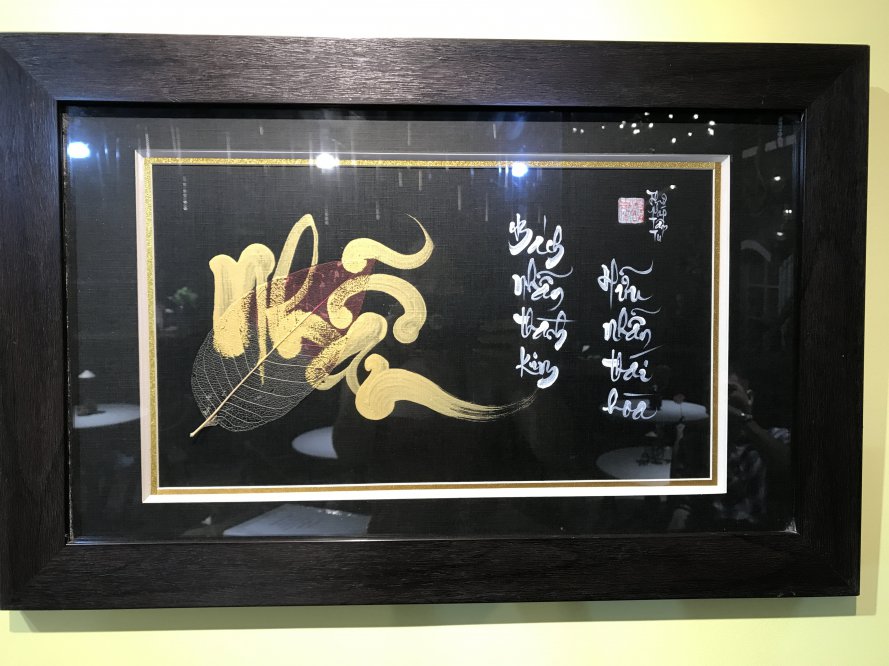 Nhẫn
Bách
nhẫn
thành
kim
Hữu
nhẫn
thái
hòa